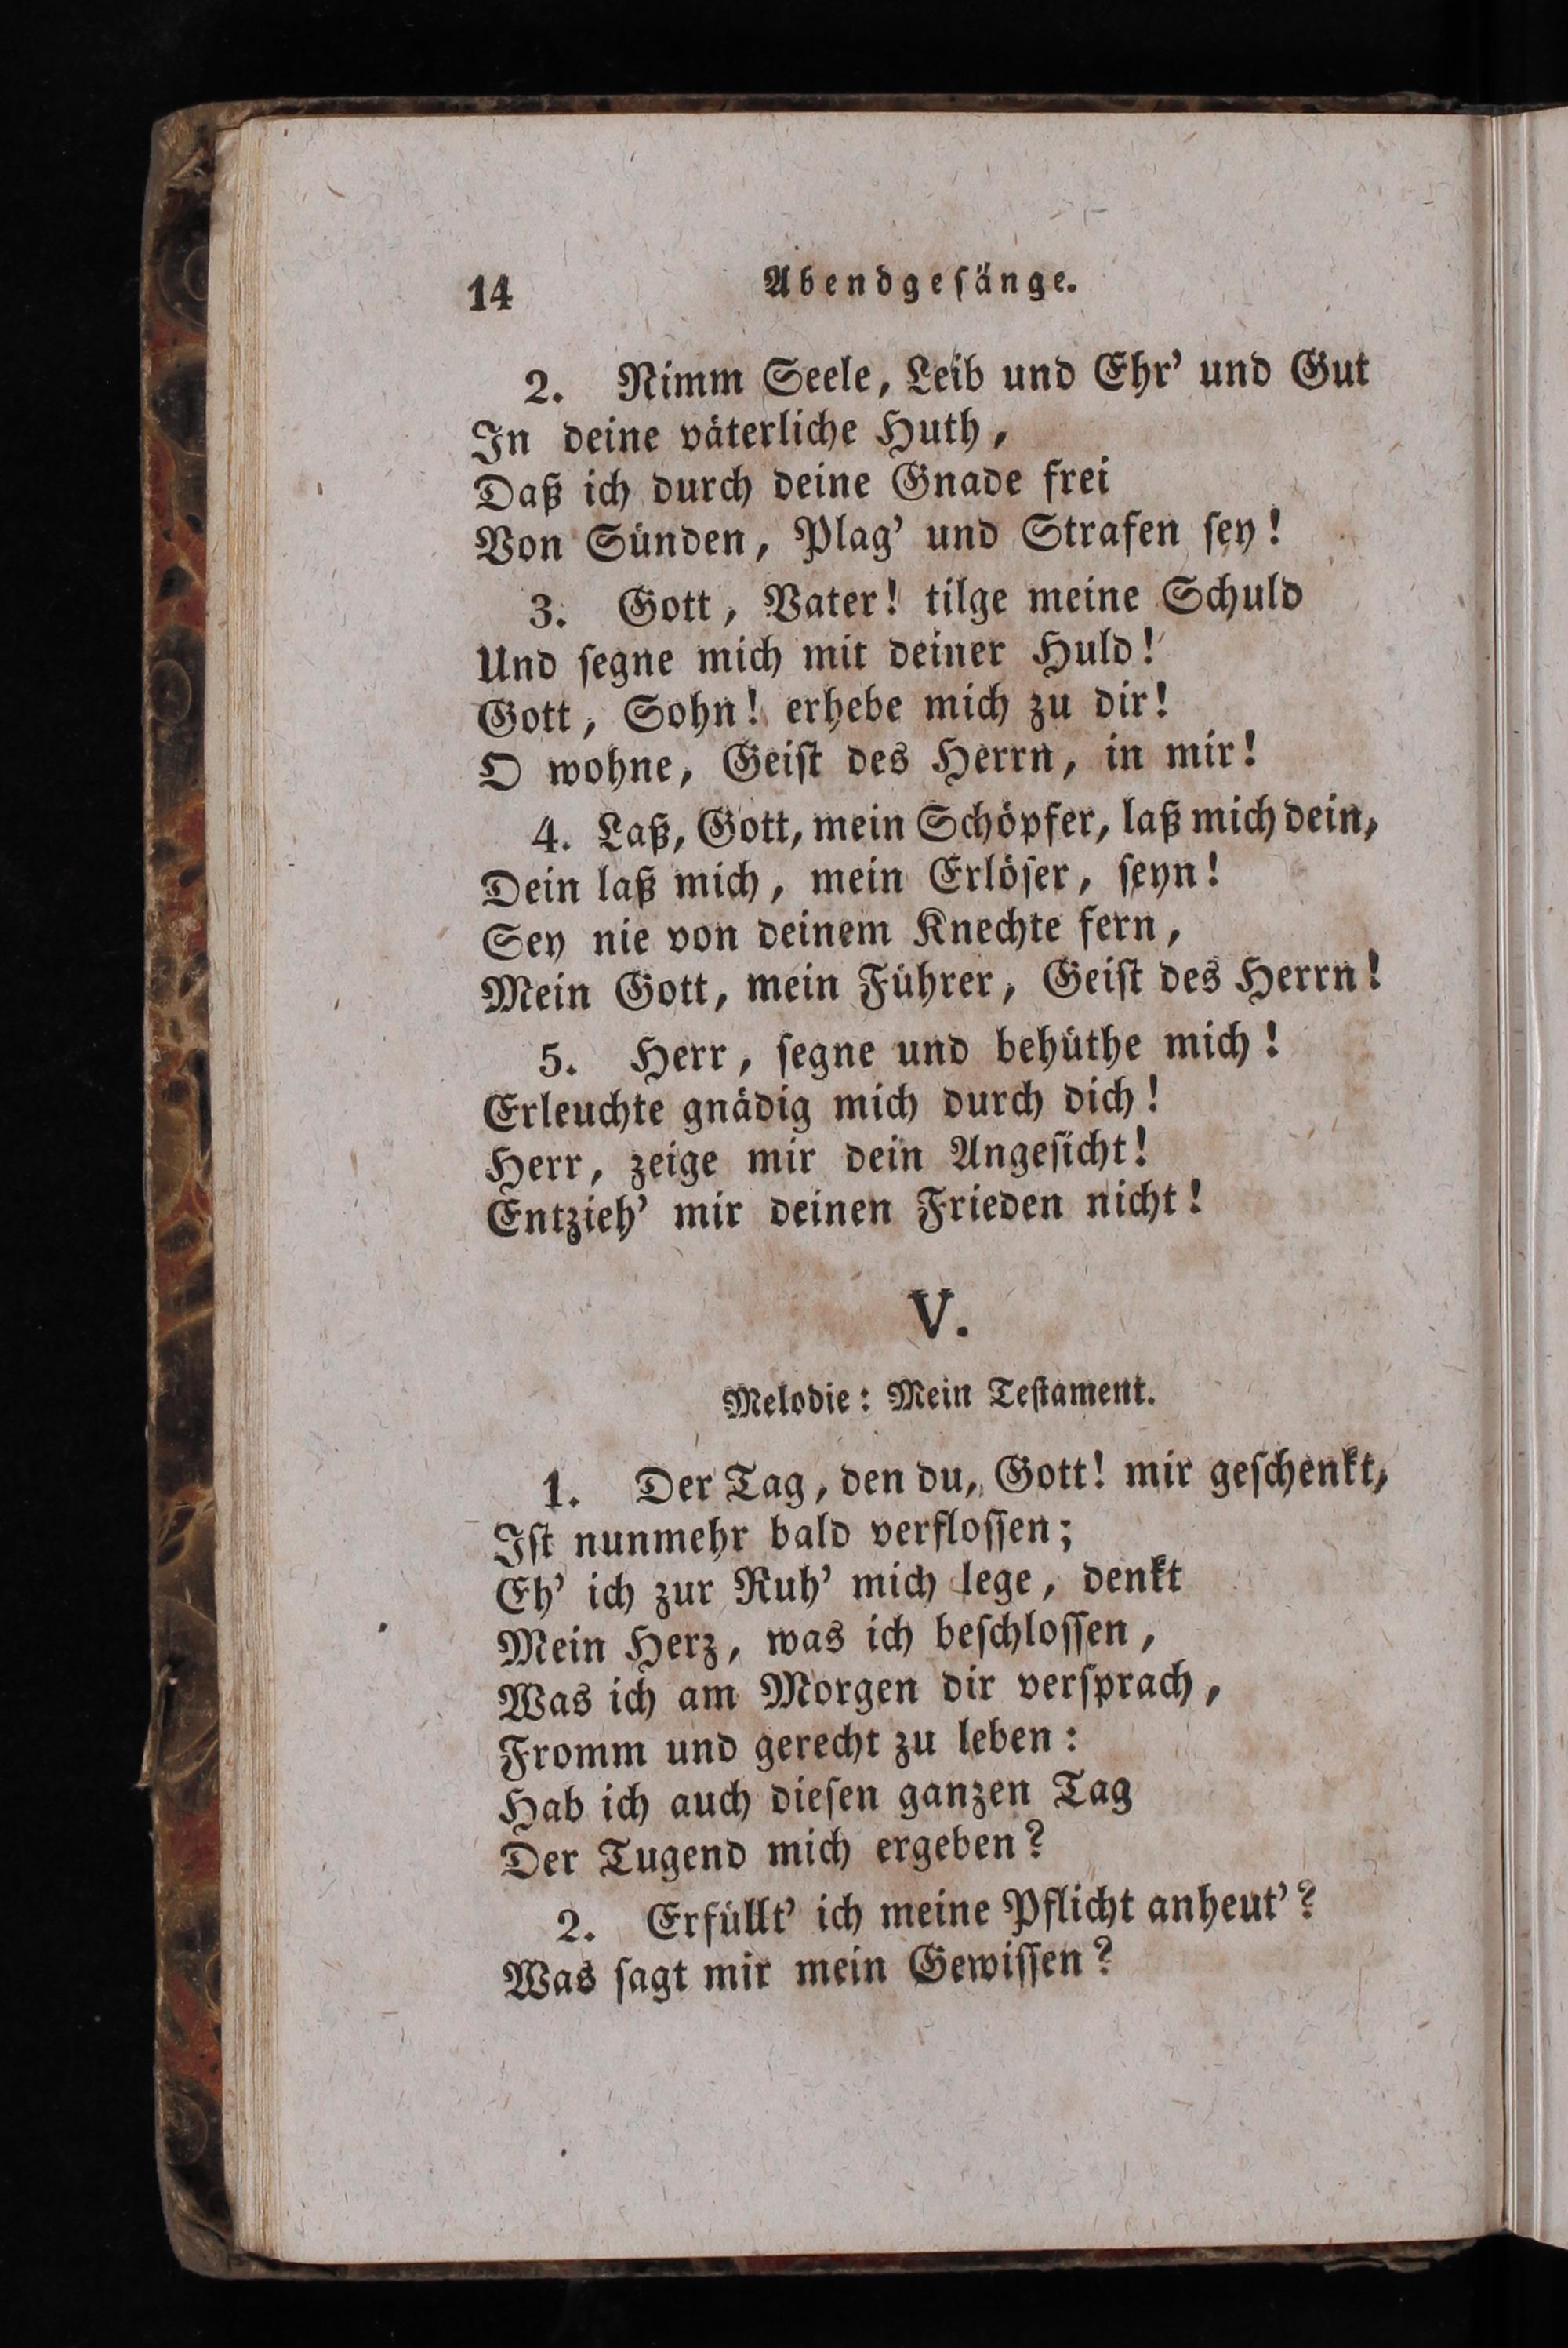 14 Abendgeſänge.
2. Nimm Seele, Leib und Ehr' und Gut
In deine väterliche Huth,
Daß ich durch deine Gnade frei
Von Sünden, Plag' und Strafen ſey!
3. Gott, Vater! tilge meine Schuld
Und ſegne mich mit deiner Huld!
Gott, Sohn! erhebe mich zu dir!
O wohne, Geiſt des Herrn, in mir!
4. Laß, Gott, mein Schöpfer, laß mich dein,
Dein laß mich, mein Erlöſer, ſeyn!
Sey nie von deinem Knechte fern,
Mein Gott, mein Führer, Geiſt des Herrn!
5. Herr, ſegne und behüthe mich!
Erleuchte gnädig mich durch dich!
Herr, zeige mir dein Angeſicht!
Entzieh' mir deinen Frieden nicht!
V.
Melodie: Mein Teſtament.
1. Der Tag, den du, Gott! mir geſchenkt,
Iſt nunmehr bald verfloſſen;
Eh' ich zur Ruh' mich lege, denkt
Mein Herz, was ich beſchloſſen,
Was ich am Morgen dir verſprach,
Fromm und gerecht zu leben:
Hab ich auch dieſen ganzen Tag
Der Tugend mich ergeben?
2. Erfüllt' ich meine Pflicht anheut'?
Was ſagt mir mein Gewiſſen?